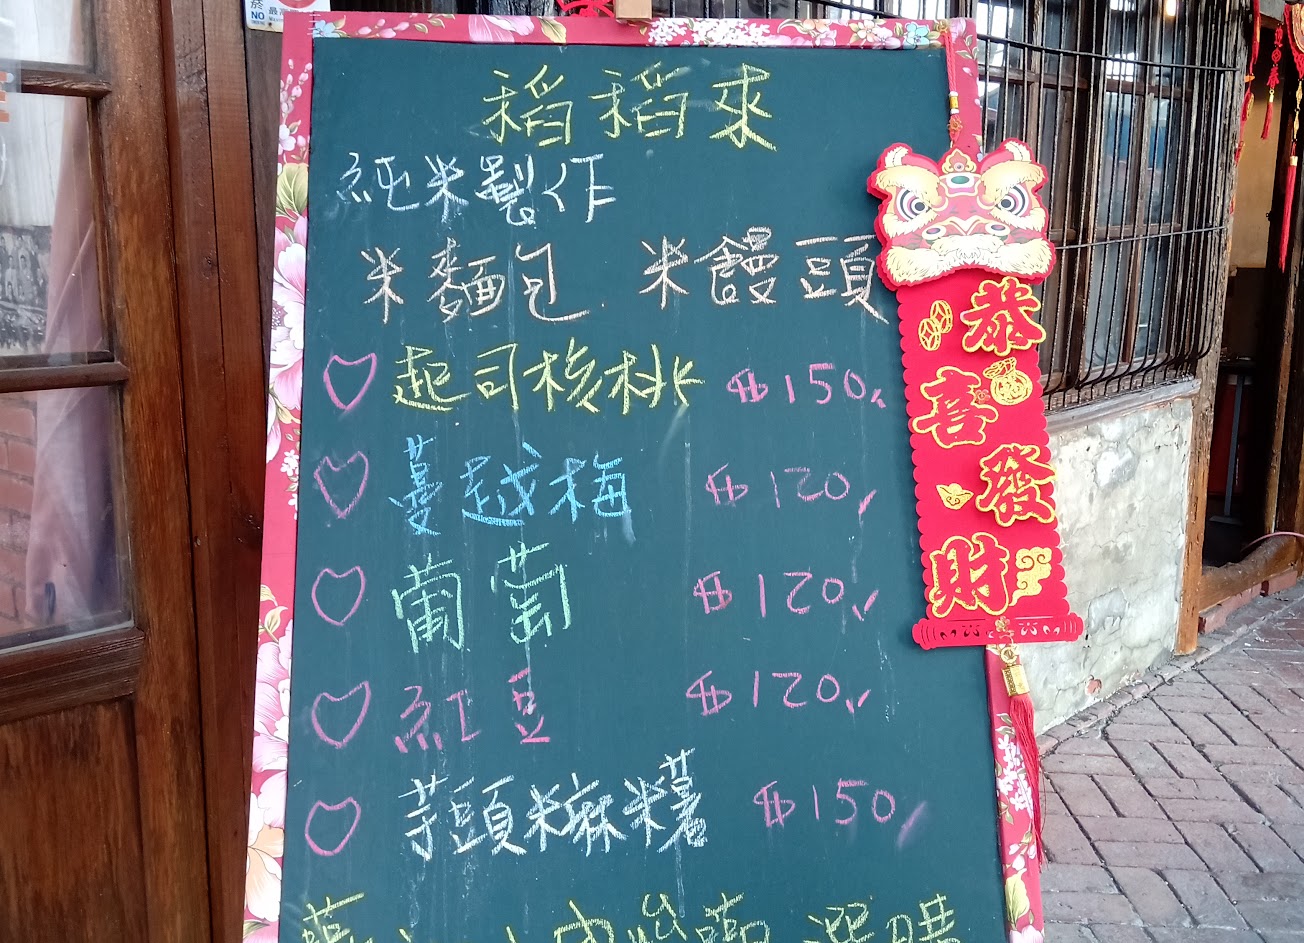 稻稻來
純米製作
米麵包 米饅頭
起司核桃 $150
蔓越梅 $120
葡萄 $120
紅豆 $120
芋頭米麻米薯 $150
選購
恭喜發財
菸
NO